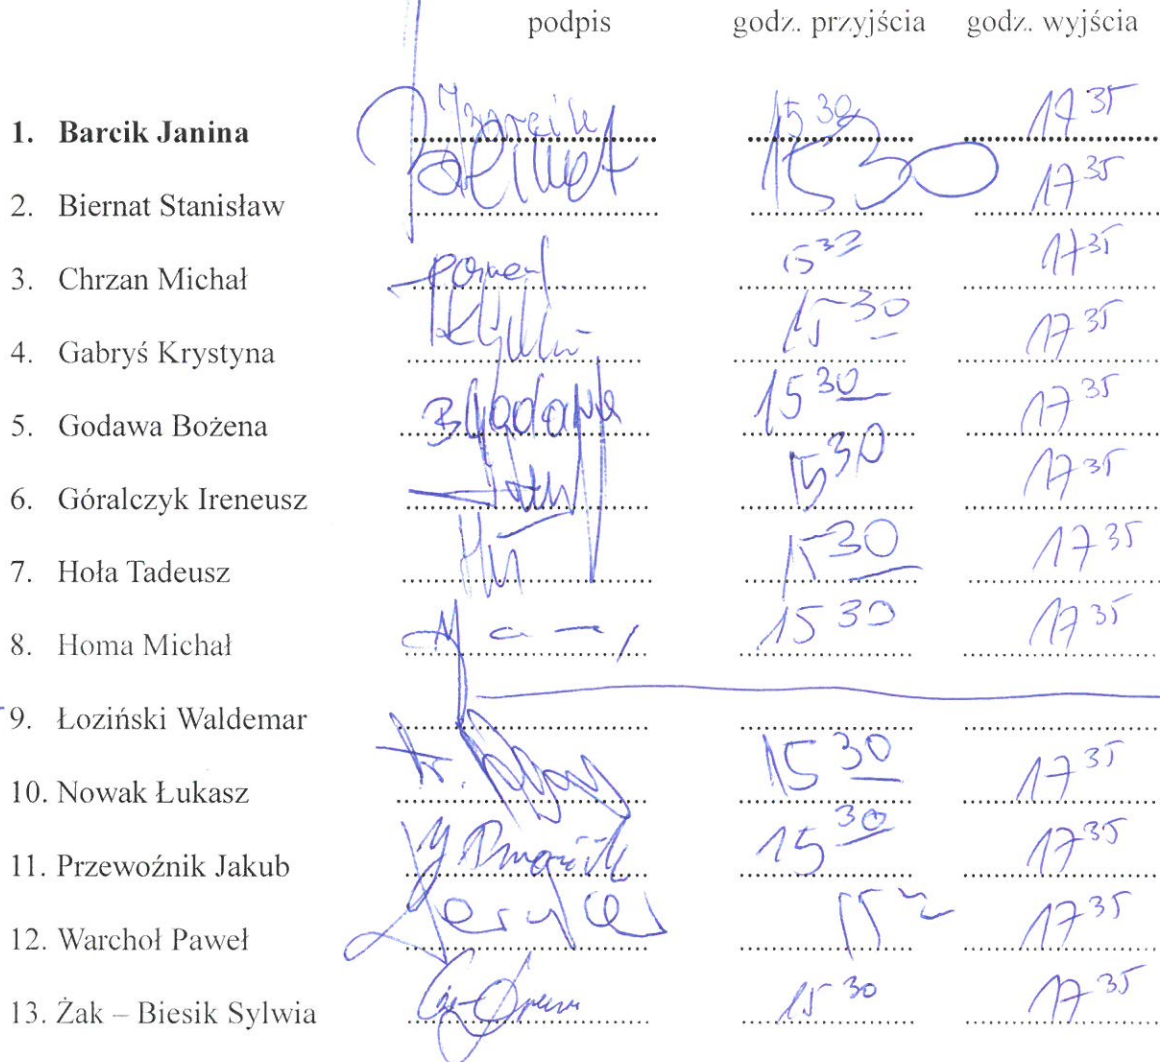 podpis godz. przyjścia godz. wyjścia
1. Barcik Janina JBarcik 15 30 17 35
2. Biernat Stanisław Biernat 15 30 17 35
3. Chrzan Michał 17 35
4. Gabryś Krystyna 15 30 17 35
5. Godawa Bożena B Godawa 15 30 17 35
6. Góralczyk Ireneusz 15 30 17 35
7. Hoła Tadeusz 15 30 17 35
8. Homa Michał 15 30 17 35
9. Łoziński Waldemar
10. Nowak Łukasz 15 30 17 35
11. Przewoźnik Jakub 15 30 17 35
12. Warchoł Paweł 17 35
13. Żak – Biesik Sylwia 15 30 17 35